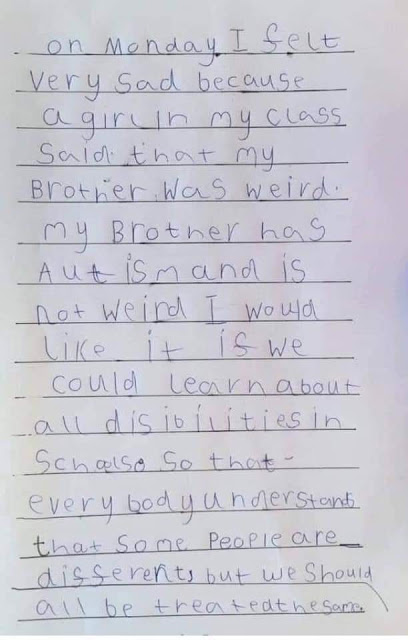 on Monday I felt
very sad because
a girl in my class
said that my
Brother was weird.
my Brother has
Autism and is
not weird I would
like it if we
could learn about
all disibilities in
Schalso so that
everybody understands
that some People are
differents but we should
all be treated the same